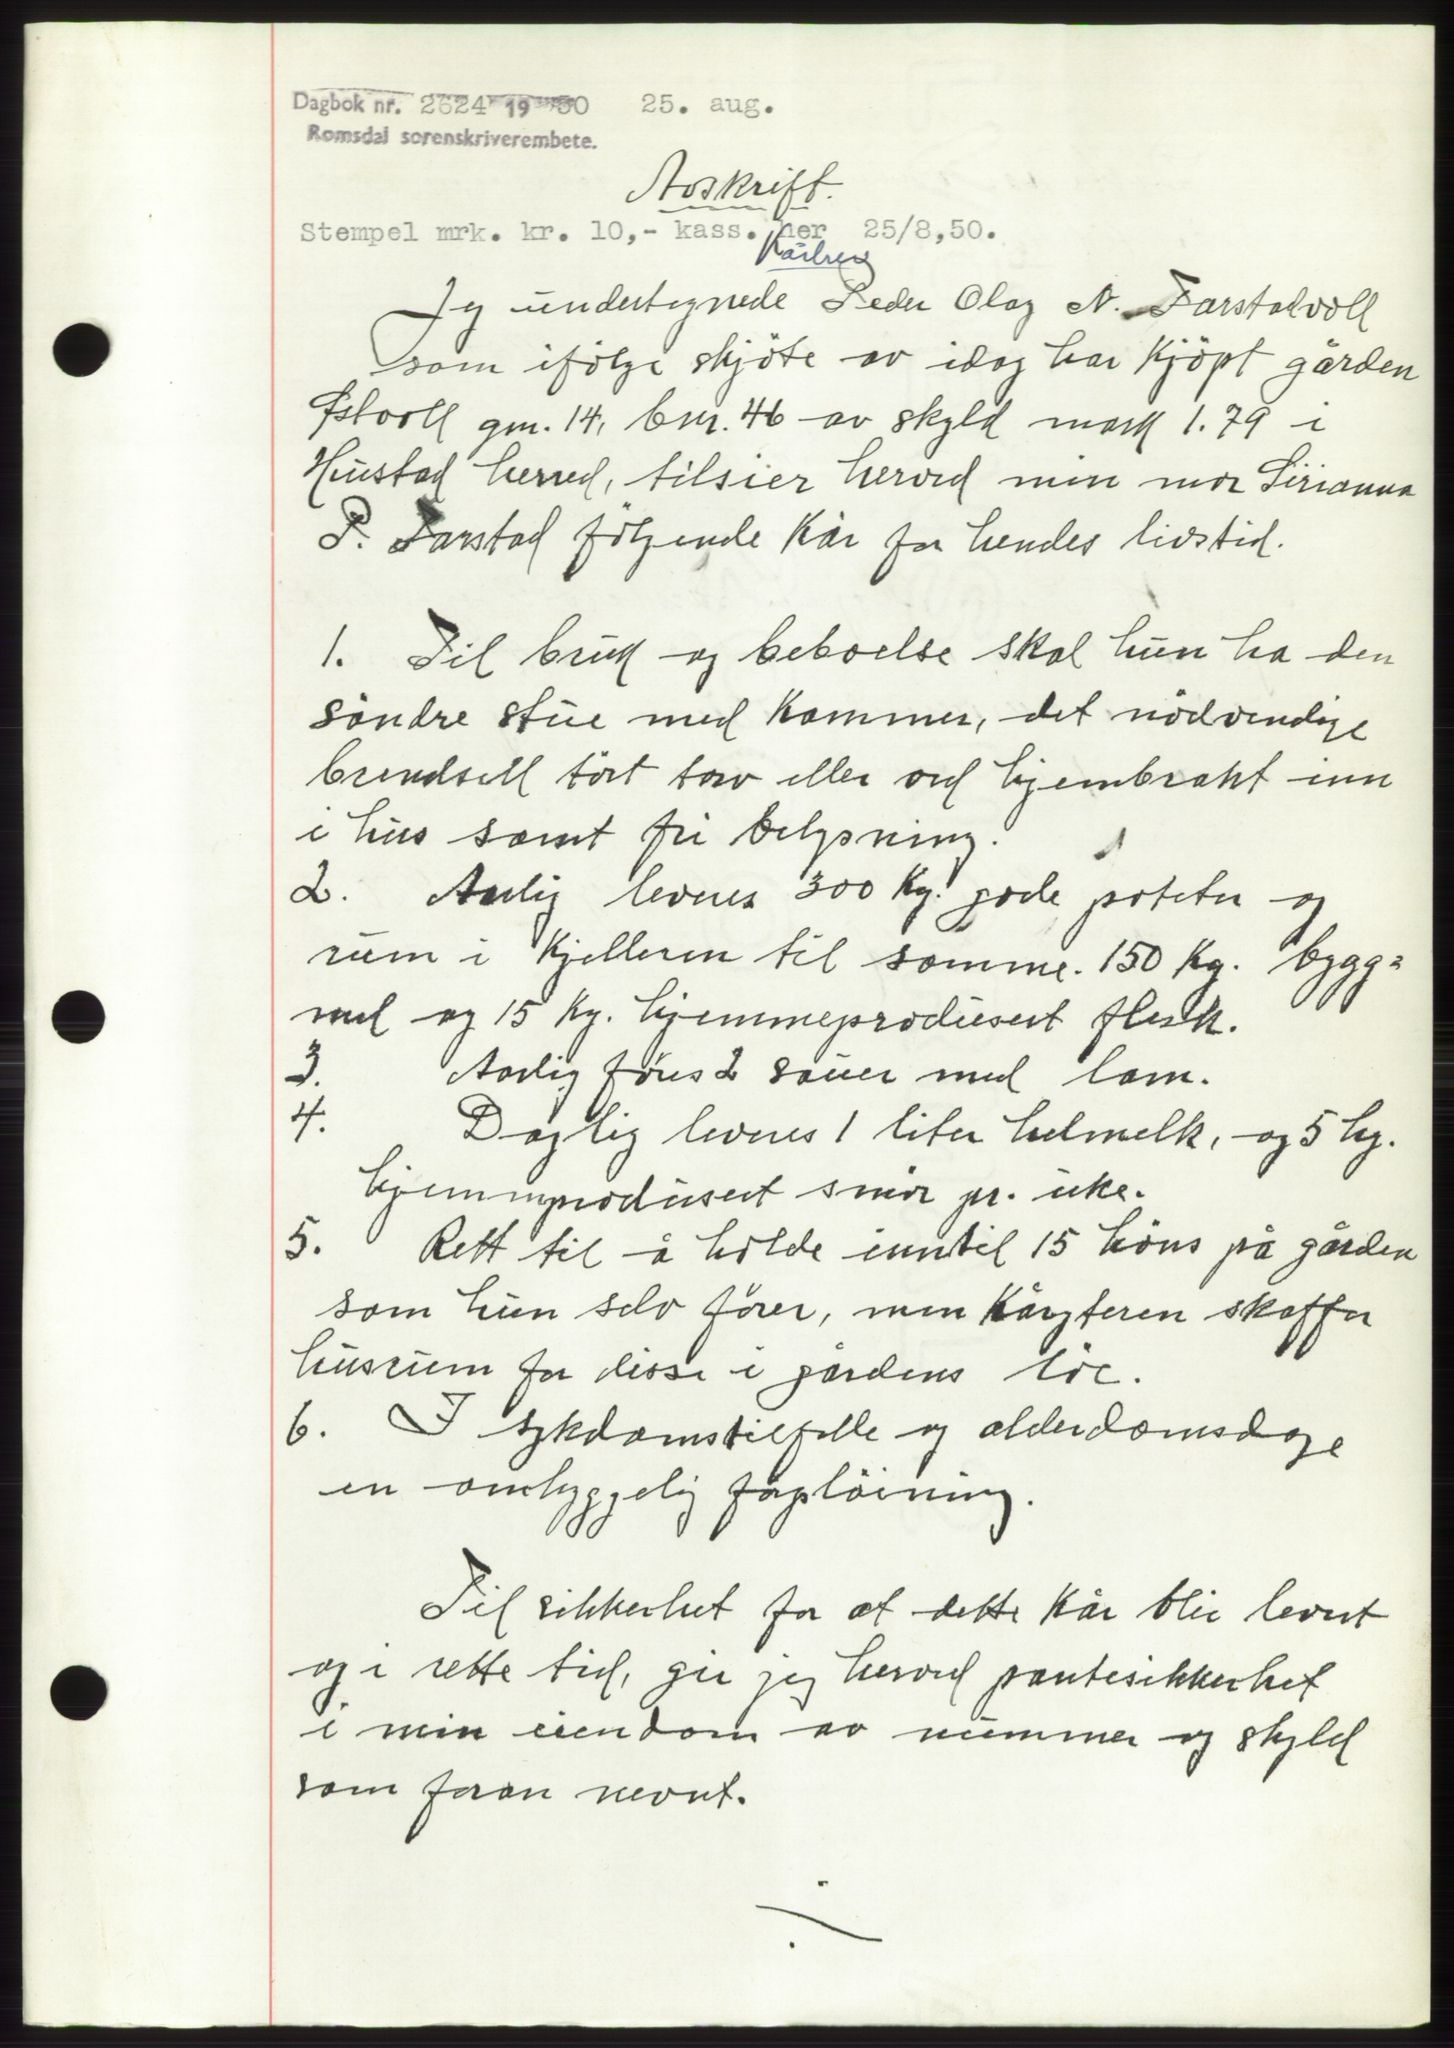 Dagbok nr. 2624 1950 25. aug.
Romsdal sorenskriverembete.
Avskrift.
Stempel mrk. kr. 10,- kass. her 25/8,50.
Kårbrev
Jeg undertegnede Peder Olag N. Farstadvoll
som ifölge skjöte av idag har kjöpt gården
Östvoll gnr. 14, bnr. 46 av skyld mark 1.79 i
Hustad herred, tilsier herved min mor Sirianna
P. Farstad fölgende kår for hendes livstid.
1. Til bruk og beboelse skal hun ha den
söndre stue med kammer, det nödvendige
brendsell tört torv eller ved hjembrakt inn
i hus samt fri belysning.
2. Aarlig leveres 300 kg. gode poteter og
rum i kjelleren til samme. 150 kg. bygg=
mel og 15 kg. hjemmeprodusert flesk.
3. Aarlig föres 2 sauer med lam.
4. Daglig leveres 1 liter helmelk, og 5 hg.
hjemmprodusert smör pr. uke.
5. Rett til å holde inntil 15 höns på gården
som hun selv förer, men kåryteren skaffer
husrum for disse i gårdens löe.
6. I sykdomstilfelle og alderdomsdage
en omhyggelig forpleining.
Til sikkerhet for at dette kår blir levert
og i rette tid, gir jeg herved pantesikkerhet
i min eiendom av nummer og skyld
som foran nevnt.